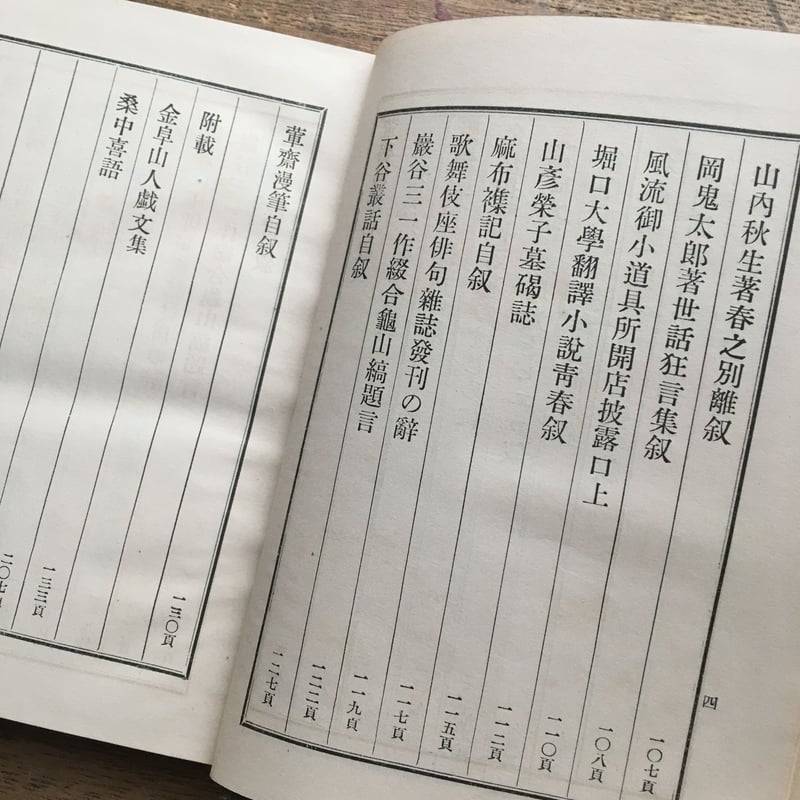 山內秋生著春之別離叙 一〇七頁
岡鬼太郎著世話狂言集叙 一〇八頁
風流御小道具所開店披露口上 一一〇頁
堀口大學翻譯小說靑春叙 一一二頁
山彥榮子墓碣誌 一一五頁
麻布襍記自叙 一一七頁
歌舞伎座俳句雜誌發刊の辭 一一九頁
巖谷三一作綴合龜山縞題言 一二二頁
下谷叢話自叙 一二七頁
四
葷齋漫筆自叙 一三〇頁
附載
金阜山人戯文集 一三三頁
桑中喜語 二〇七頁